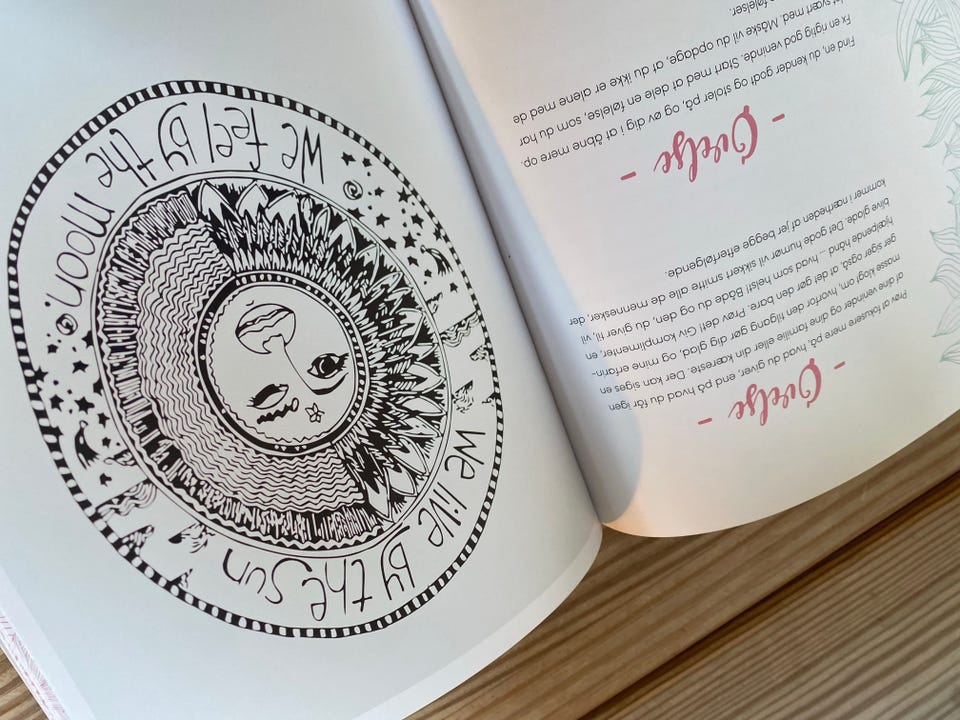 - Øvelse -
Prøv at fokusere mere på, hvad du giver, end på hvad du får igen
af dine veninder og dine familie eller din kæreste. Der kan siges en
masse klogt om, hvorfor den tilgang gør dig glad, og mine erfarin-
ger siger også, at det gør den bare. Prøv det! Giv komplimenter, en
hjælpende hånd ... hvad som helst. Både du og den, du giver til, vil
blive glade. Det gode humør vil sikkert smitte alle de mennesker, der
kommer i nærheden af jer begge efterfølgende.
- Øvelse -
Find en, du kender godt og stoler på, og øv dig i at åbne mere op.
Fx en rigtig god veninde. Start med at dele en følelse, som du har
svært med. Måske vil du opdage, at du ikke er alene med de
følelser.
We live by the sun
We feel by the moon.